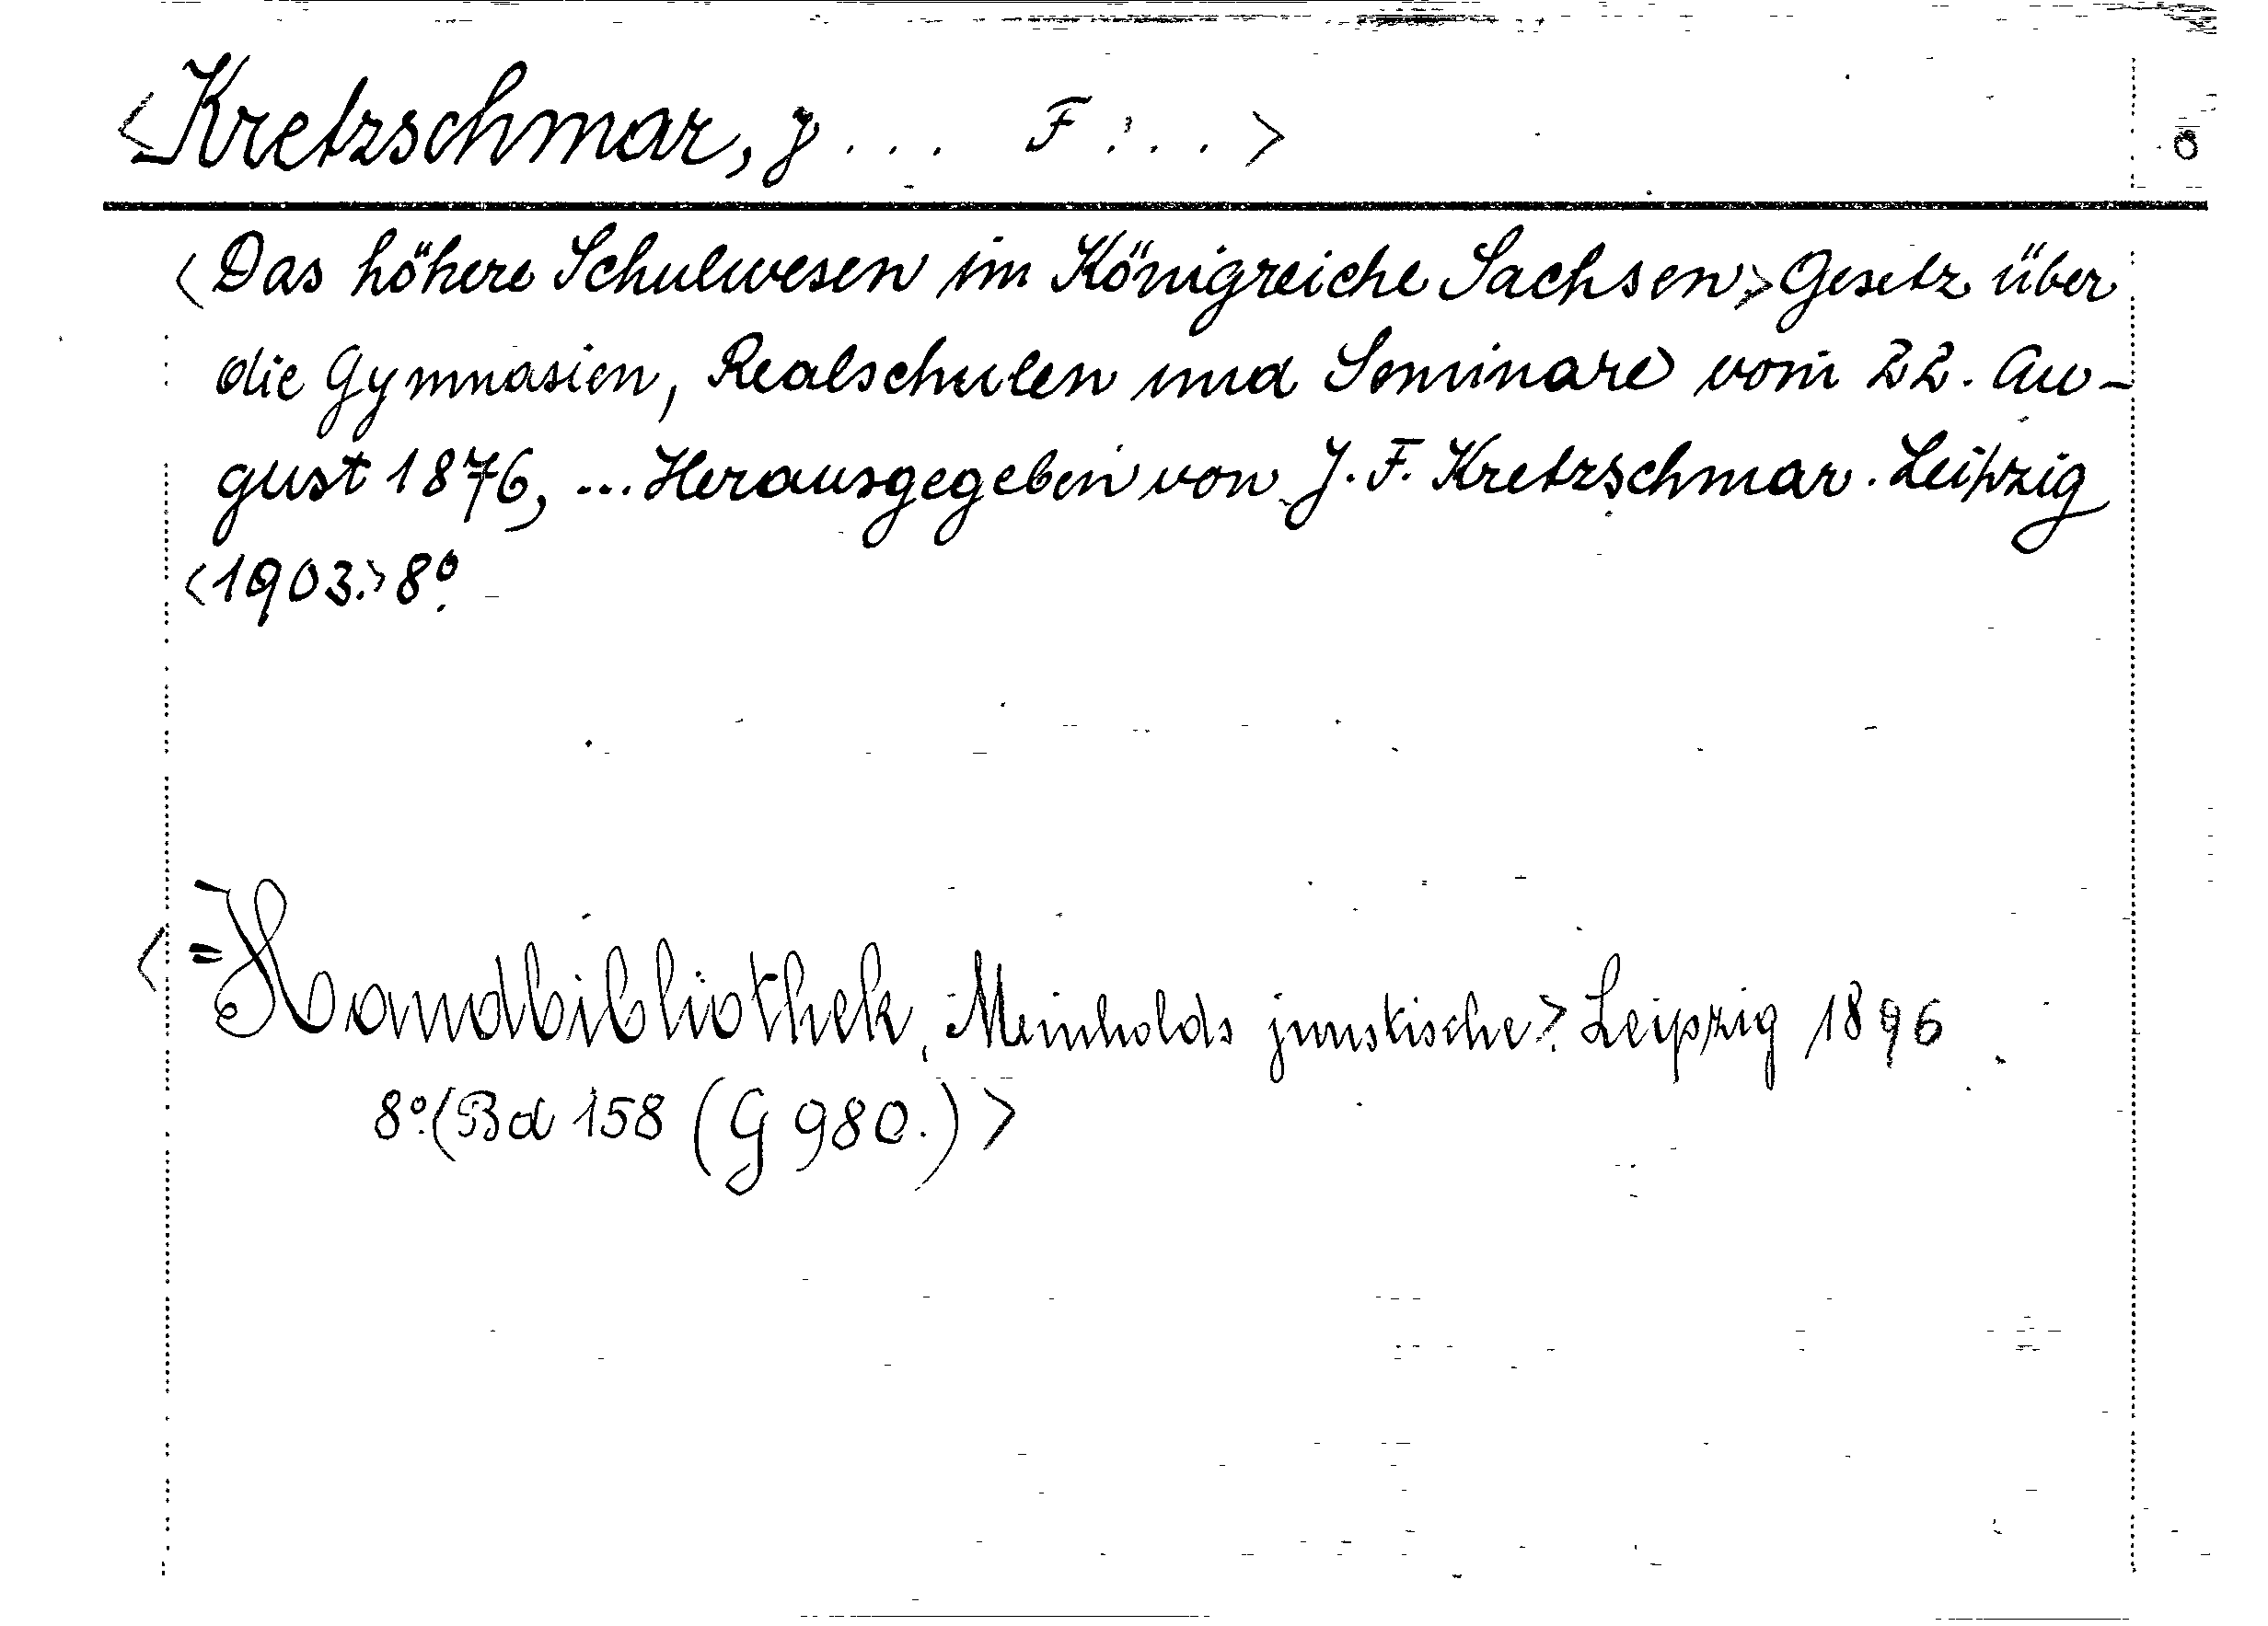 <Kretzschmar, J... F...>
<Das höhere Schulwesen im Königreiche Sachsen,> Gesetz über
die Gymnasien, Realschulen und Seminare vom 22. Au-
gust 1876, ... Herausgegeben von J. F. Kretzschmar. Leipzig
<1903.> 8°.
<= Handbibliothek, Meinholds juristische.> Leipzig 1896
8°. (Bd 158 (G 980.)>